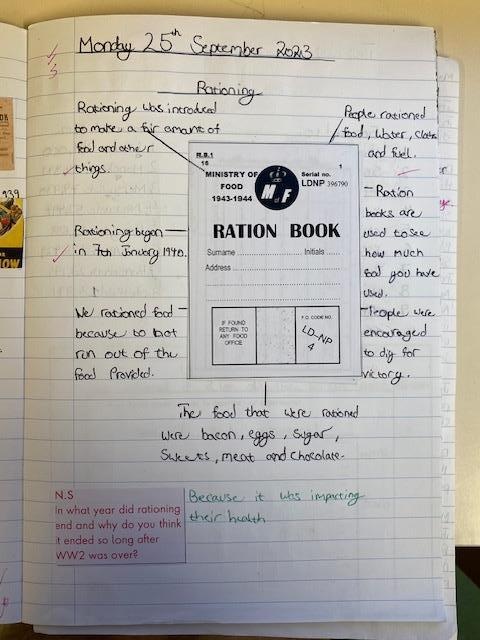 Monday 25th September 2023
Rationing
Rationing was introduced
to make a fair amount of
food and other
things.
People rationed
food, water, clothes
and fuel.
Rationing began
in 7th January 1940.
Ration
books are
used to see
how much
food you have
used.
We rationed food
because to not
run out of the
food provided.
People were
encouraged
to dig for
victory.
R.B.1
16
MINISTRY OF
FOOD
1943-1944
M of F
1
Serial no.
LDNP 396790
RATION BOOK
Surname Initials
Address
IF FOUND
RETURN TO
ANY FOOD
OFFICE
F.O. CODE NO.
LD-NP
4
The food that were rationed
were bacon, eggs, sugar,
sweets, meat and chocolate.
N.S
In what year did rationing
end and why do you think
it ended so long after
WW2 was over?
Because it was impacting
their health
939
OW